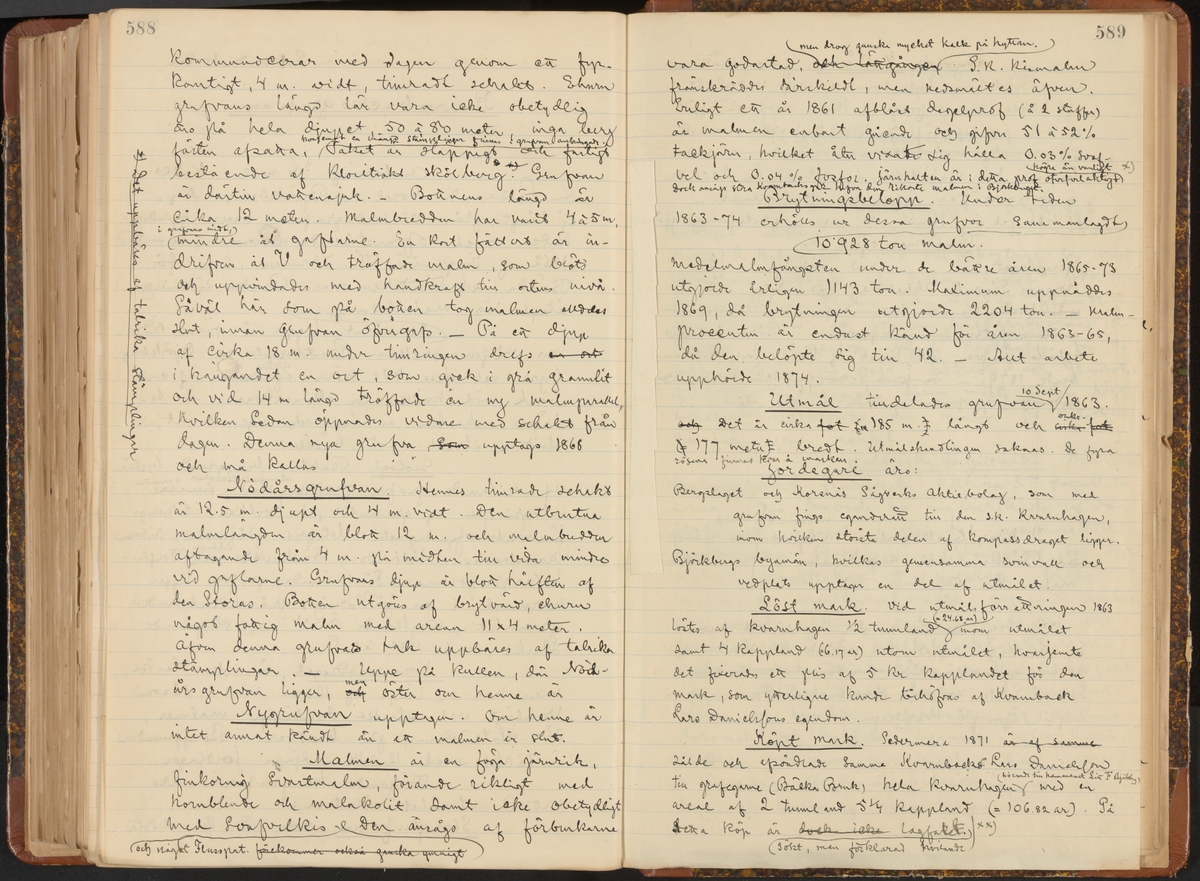 588
kommunicerar med dagen genom ett fyr-
kantigt, 4 m. vidt, timradt schakt. Ehuru
grufvans längd lär vara icke obetydlig
äro på hela djupet 50 à 80 meter inga berg
fästen afsatta, Taket är släppigt och farligt
bestående af kloritiskt sköberg. *) Grufvan
är därtill vattensjuk. – Bottnens längd är
cirka 12 meter. Malmbredden har varit 4 à 5 m,
i grufvans midt,
mindre åt gaflarne. En kort fältort är in-
drifven åt V och träffade malm, som bröts
och uppvindades med handkraft till ortens nivå.
Såväl här som på botten tog malmen alldeles
slut, innan grufvan öfvergafs. – På ett djup
af cirka 18 m. under timringen drefs en ort
i hängandet en ort, som gick i grå granulit
och vid 14 m längd träffade en ny malmparallel,
hvilken sedan öppnades vidare med schakt från
dagen. Denna nya grufva som upptogs 1868
och må kallas
Nödårsgrufvan. Hennes timrade schakt
är 12.5 m. djupt och 4 m. vidt. Den utbrutna
malmlängden är blott 12 m. och malmbredden
aftagande från 4 m. på midten till vida mindre
vid gaflarne. Grufvans djup är blott hälften af
den Storas. Botten utgöres af brytvärd, ehuru
något fattig malm med arean 11 x 4 meter.
Äfven denna grufvas tak uppbäres af talrika
stämplingar. – Uppe på kullen, där Nöd-
årsgrufvan ligger, och men öster om henne är
Nygrufvan upptagen. Om henne är
intet annat kändt än att malmen är slut.
Malmen är en föga järnrik,
finkornig svartmalm, förande rikligt med
hornblende och malakolit samt icke obetydligt
med svafvelkis. Den ansågs af förbrukarne
och något Flusspat. förekommer också ganska ymnigt
*) Det uppbäres af talrika stämplingar
589
men drog ganska mycket kalk på hyttan.
vara godartad, och lättgången S.K. Kismalm
frånskräddes särskildt, men nedsmältes äfven.
Enligt ett år 1861 afblåst degelprof (à 2 stuffer)
är malmen enbart gående och gifven 51 à 52%
tackjärn, hvilket åter visat sig hålla 0.03% svaf-
vel och 0.04 % fosfor. Järnhalten är i detta prof högre än vanligt x)
Brytningsbelopp. Under tiden
1863-74 erhölls ur dessa grufvor sammanlagdt
10'928 ton malm.
Medelmalmfångsten under de bättre åren 1865-73
utgjorde årligen 1143 ton. Maximum uppnåddes
1869, då brytningen utgjorde 2204 ton. – Malm-
procenten är endast känd för åren 1863-65,
då den belöpte sig till 42. – Allt arbete
upphörde 1874.
Utmål tilldelades grufvan 10 Sept 1863.
och Det är cirka 185 m. långt och cirka
177 meter bredt. Utmålshandlingen saknas. De fyra
rösena finnas kvar å marken.
Jordegare äro:
Bergslaget och Korsnäs Sågverks Aktiebolag, som med
grufvan fingo eganderätt till den s.k. Kvarnhagen,
inom hvilken största delen af kompassdraget ligger.
Björkbergs byamän, hvilkas gemensamma som vall och
vedplats upptager en del af utmålet.
Löst mark. Vid utmålsförrättningen 1863
löstes af kvarnhagen 1/2 tunnland (= 24.68 ar) inom utmålet
samt 4 kappland (6.17 ar) utom utmålet, hvarjemte
det fixerades ett pris af 5 kr kapplandet för den
mark, som ytterligare kunde behöfvas af Kvarnback
Lars Danielssons egendom.
Köpt mark. Sedermera 1871 är af samma
sålde och upplät samma Kvarnbacks Lars Danielsson
till grufegarne (Bäcka Bruk) hela kvarnhagen med en
areal af 2 tunnland 5 1/4 kappland (= 106.82 ar). På
detta köp är dock icke lagfart. xx)
(Sökt, men förklarad hvilande